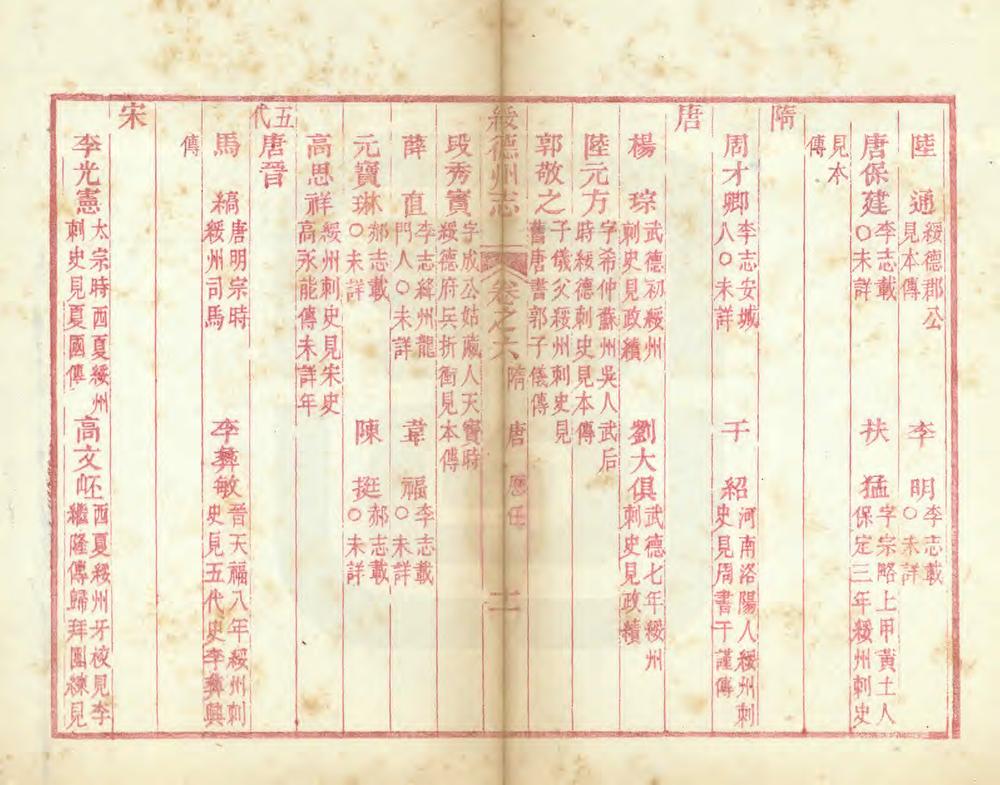 陸　通綏德郡公見本傳　李　明李志載○未詳
唐保建李志載○未詳　扶　猛字宗略上甲黃土人保定三年綏州刺史
見本傳
隋
周才卿李志安城人○未詳　于　紹河南洛陽人綏州刺史見周書于謹傳
唐
楊　琮武德初綏州刺史見政績　劉大俱武德七年綏州刺史見政績
陸元方字希仲蘇州吳人武后時綏德刺史見本傳
郭敬之子儀父綏州刺史見舊唐書郭子儀傳
綏德州志　卷之六　隋　唐　歷任　二
段秀實字成公姑臧人天寶時綏德府兵折衝見本傳
薛　直李志絳州龍門人○未詳　韋　福李志載○未詳
元寶琳郝志載○未詳　陳　挺郝志載○未詳
高思祥綏州刺史見宋史高永能傳未詳年
五代唐晉
馬　縞唐明宗時綏州司馬　李彝敏晉天福八年綏州刺史見五代史李彝興
傳
宋
李光憲太宗時西夏綏州刺史見夏國傳　高文岯西夏綏州牙校見李繼隆傳歸拜團練見